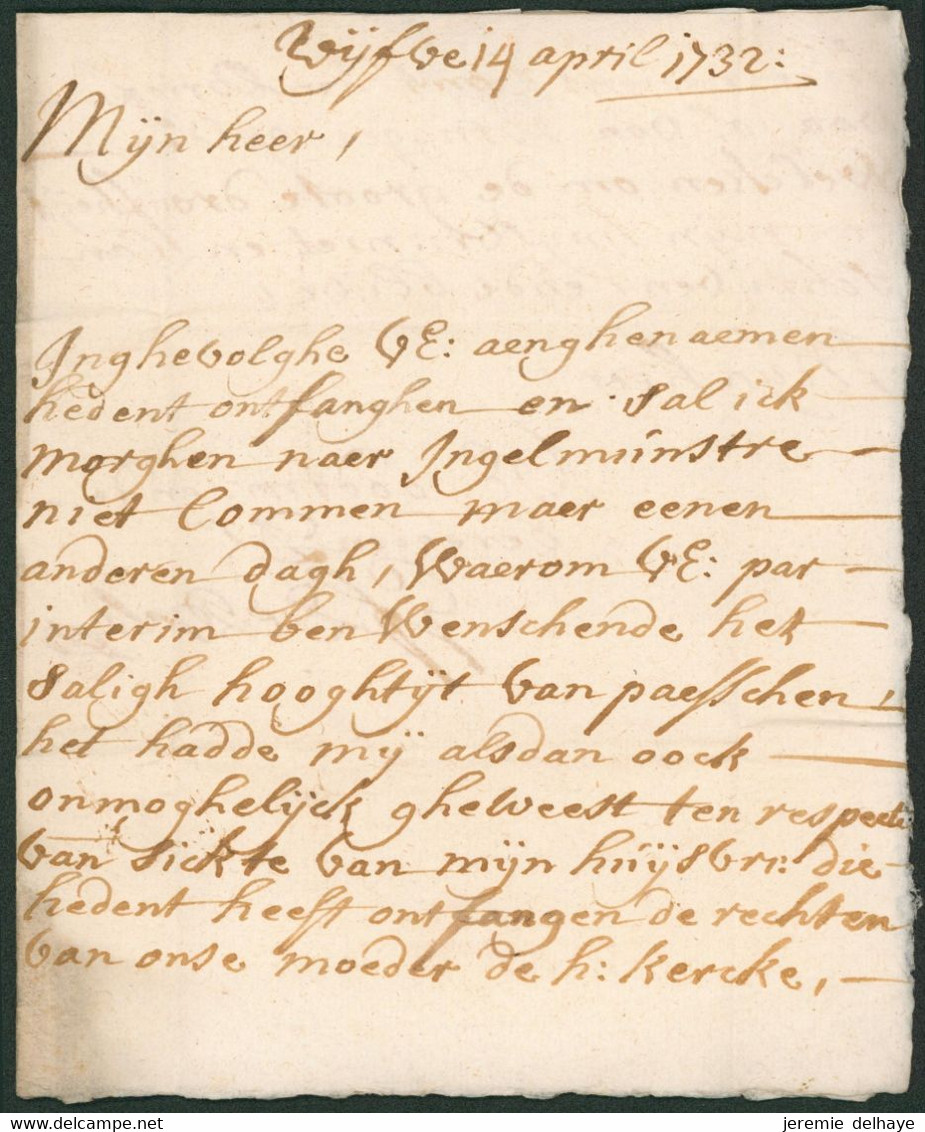 Vijfve 14 april 1732:
Mijn heer,
Inghevolghe VE: aenghenaemen
hedent ontfanghen en sal ick
morghen naer Ingelmunstre
niet commen maer eenen
anderen dagh, Waerom VE: par
interim ben Wenschende het
saligh hooghtijt van paesschen,
het hadde mij alsdan oock
onmoghelijck gheweest ten respecte
van sickte van mijn huijsvr: die
hedent heeft ontfangen de rechten
van onse moeder de h: kercke,
jeremie delhaye